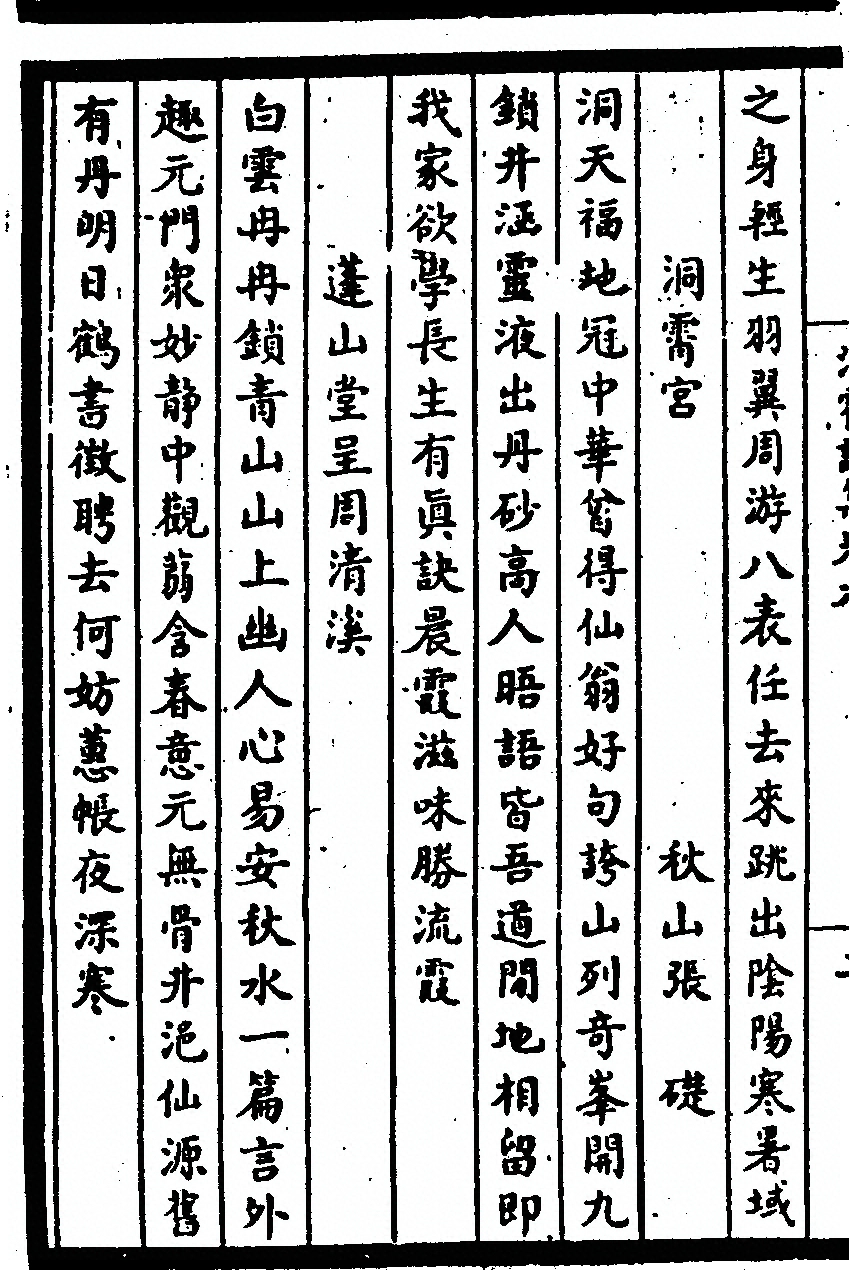 之身輕生羽翼周游八表任去來跳出陰陽寒暑域
洞霄宮　秋山張　礎
洞天福地冠中華曾得仙翁好句誇山列奇峯開九
鎖井涵靈液出丹砂高人晤語皆吾道閒地相留即
我家欲學長生有眞訣晨霞滋味勝流霞
蓬山堂呈周清溪
白雲冉冉鎖青山山上幽人心易安秋水一篇言外
趣元門衆妙静中觀蒻含春意元無骨井浥仙源舊
有丹明日鶴書徵聘去何妨蕙帳夜深寒